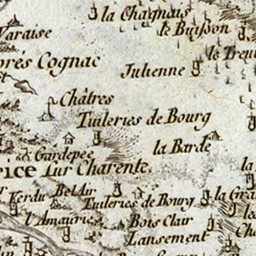 la Chagnais
Varaise
le Buisson
le Treu
prés Cognac
Julienne
Châtres
Tuileries de Bourg
la Barde
Gardepée
rice sur Charente
la
Verdu
Bel Air
Tuileries de Bourg
la Gra
l'Amaurie
Bois Clair
Lansement